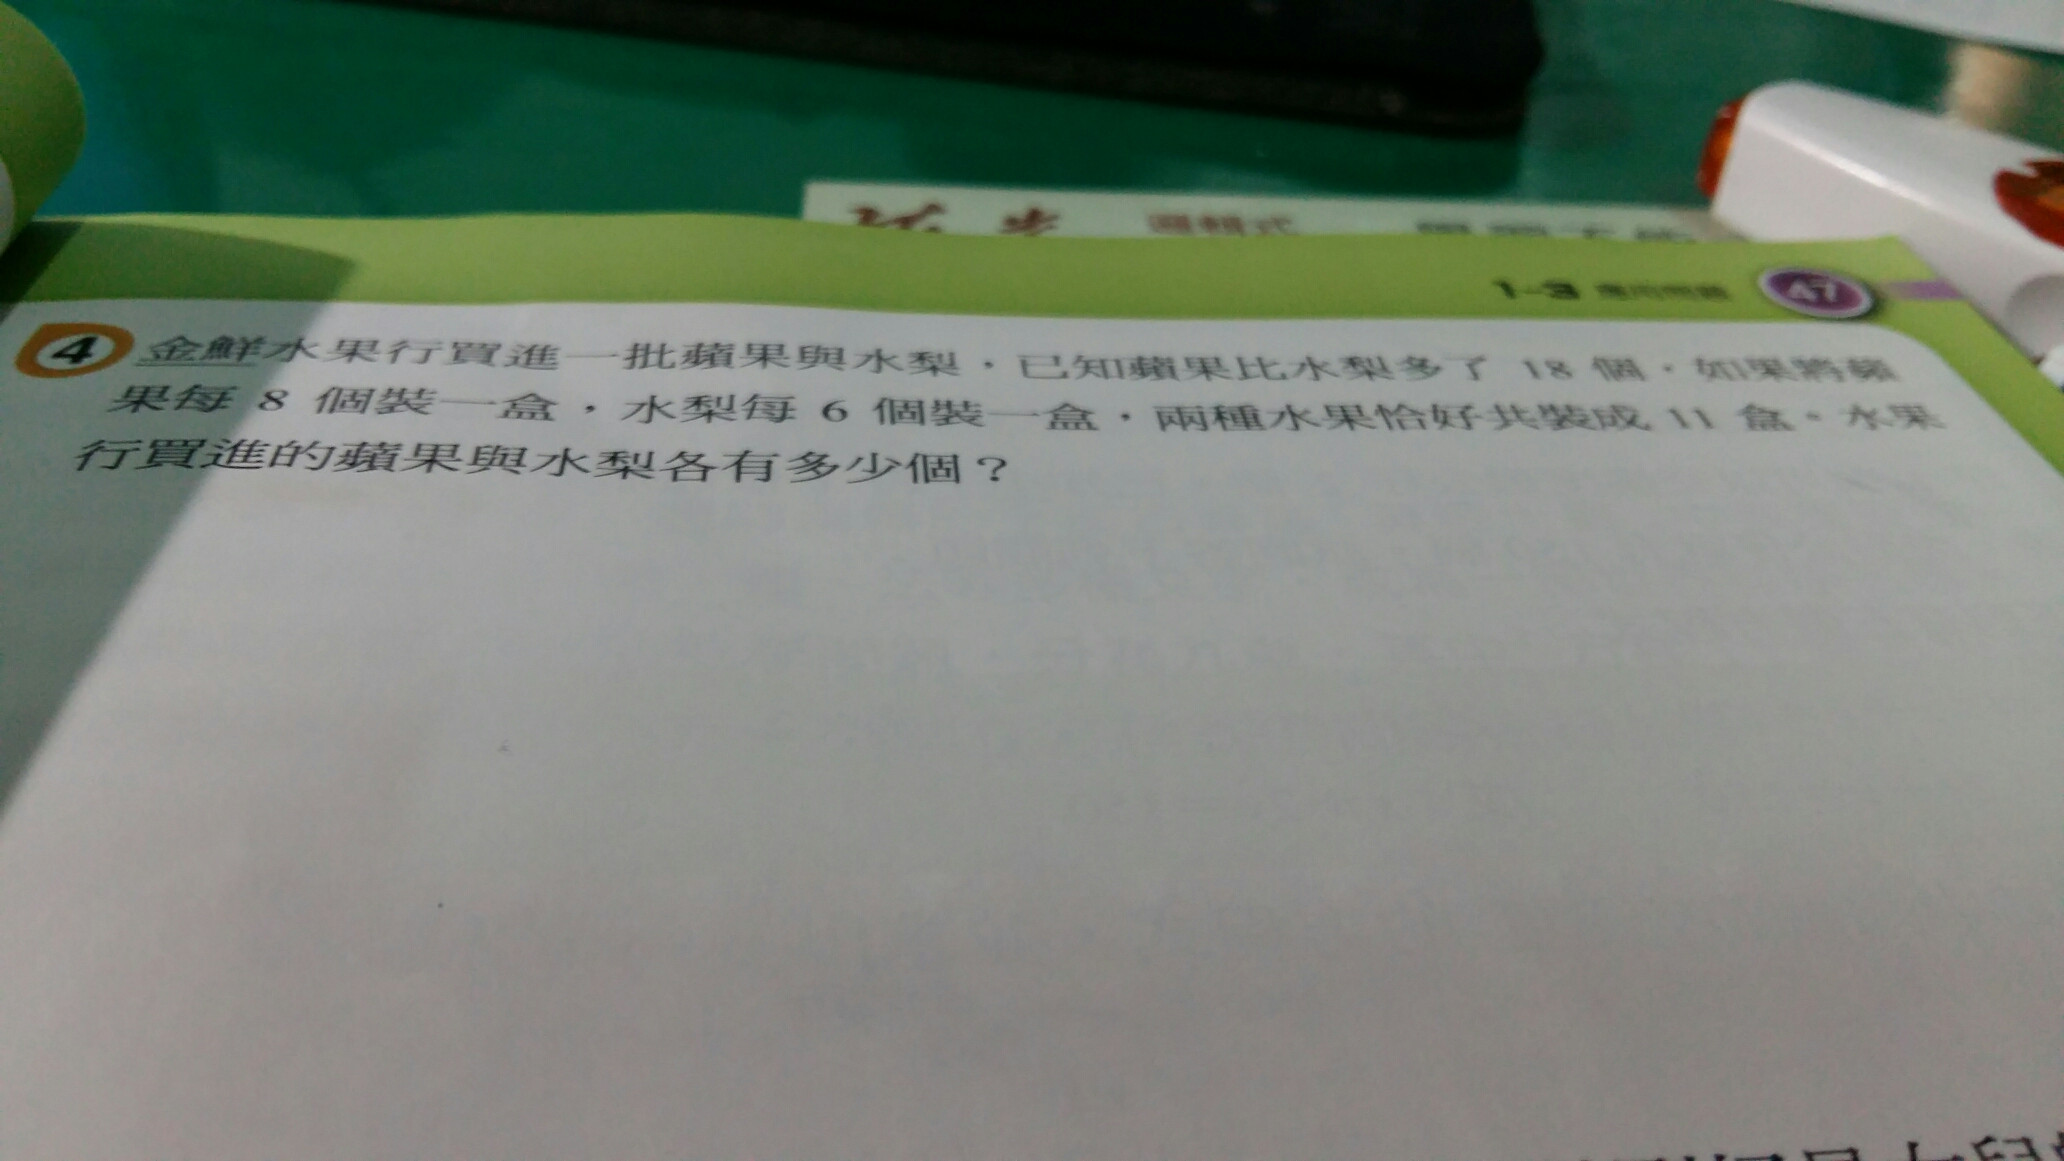 1-3 應用問題 47
4 金鮮水果行買進一批蘋果與水梨，已知蘋果比水梨多了 18 個，如果將蘋
果每 8 個裝一盒，水梨每 6 個裝一盒，兩種水果恰好共裝成 11 盒。水果
行買進的蘋果與水梨各有多少個？